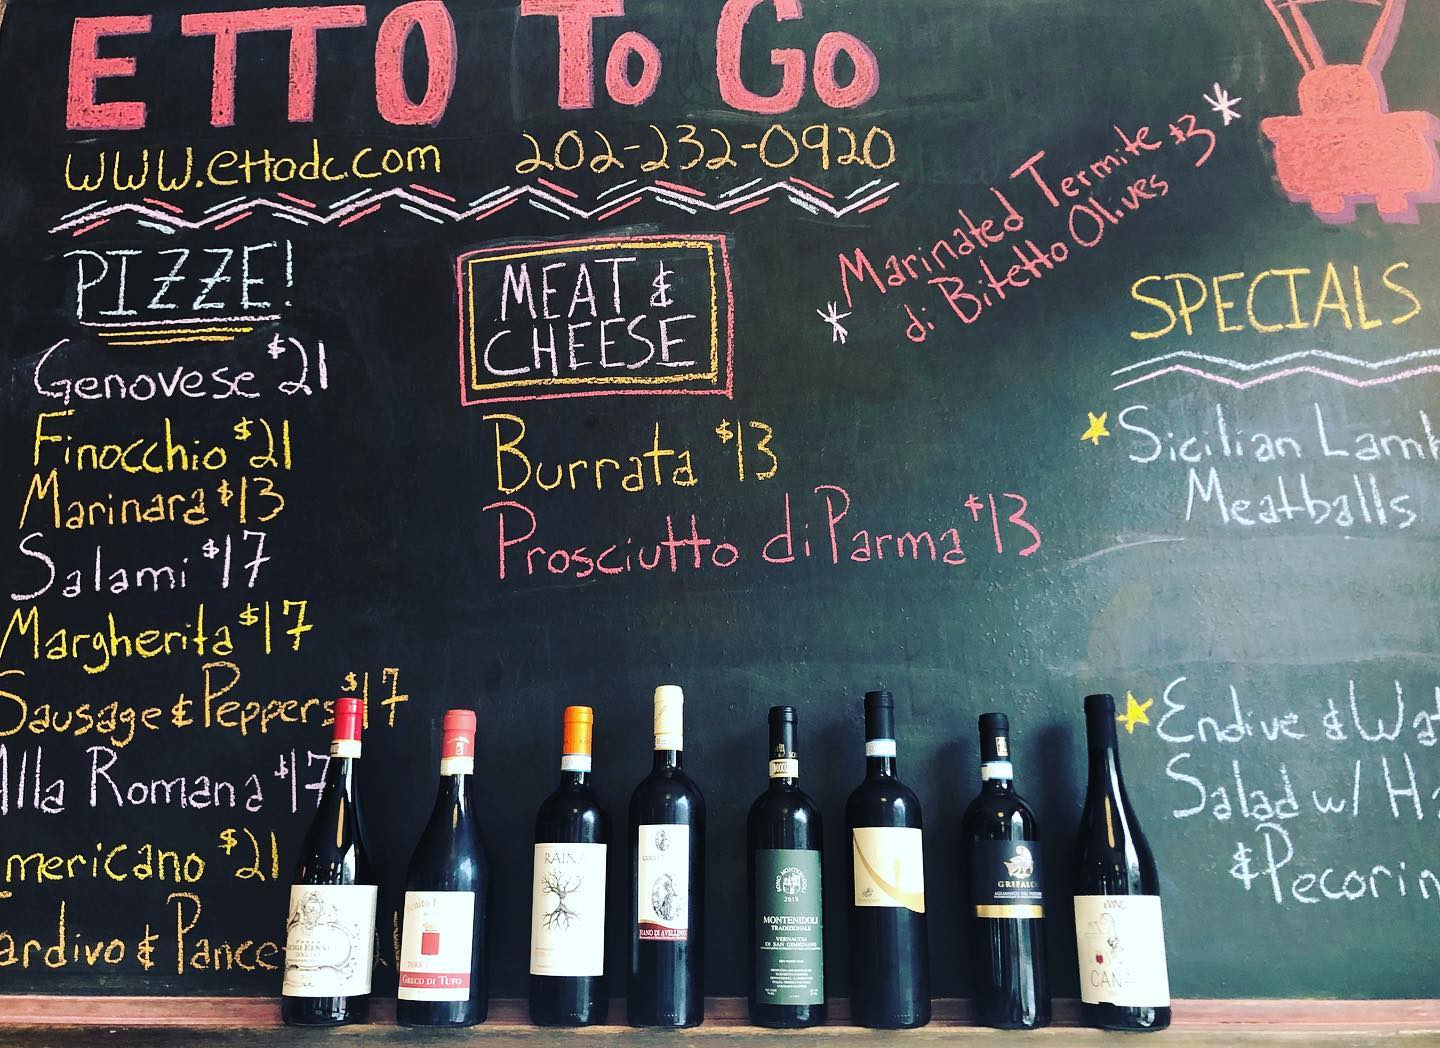 ETTO To Go
www.ettodc.com 202-232-0920
PIZZE!
Genovese $21
Finocchio $21
Marinara $13
Salami $17
Margherita $17
Sausage & Peppers $17
Alla Romana $17
mericano $21
ardivo & Pance
MEAT &
CHEESE
Burrata $13
Prosciutto di Parma $13
* Marinated Termite $13 *
di Bitetto Olives
SPECIALS
Sicilian Lamb
Meatballs
Endive & Wat
Salad w/ Ha
& Pecorin
GRECO DI TUFO
RAÍN
FIANO DI AVELLINO
MONTENIDOLI
2018
MONTENIDOLI
TRADIZIONALE
VERNACCIA
DI SAN GIMIGNANO
GRIFALCO
AGLIANICO DEL VULTURE
CANA